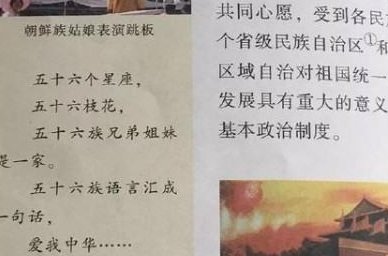 朝鲜族姑娘表演跳板
五十六个星座,
五十六枝花,
五十六族兄弟姐妹
是一家。
五十六族语言汇成
一句话,
爱我中华……
共同心愿,受到各民
个省级民族自治区①和
区域自治对祖国统一
发展具有重大的意义
基本政治制度。